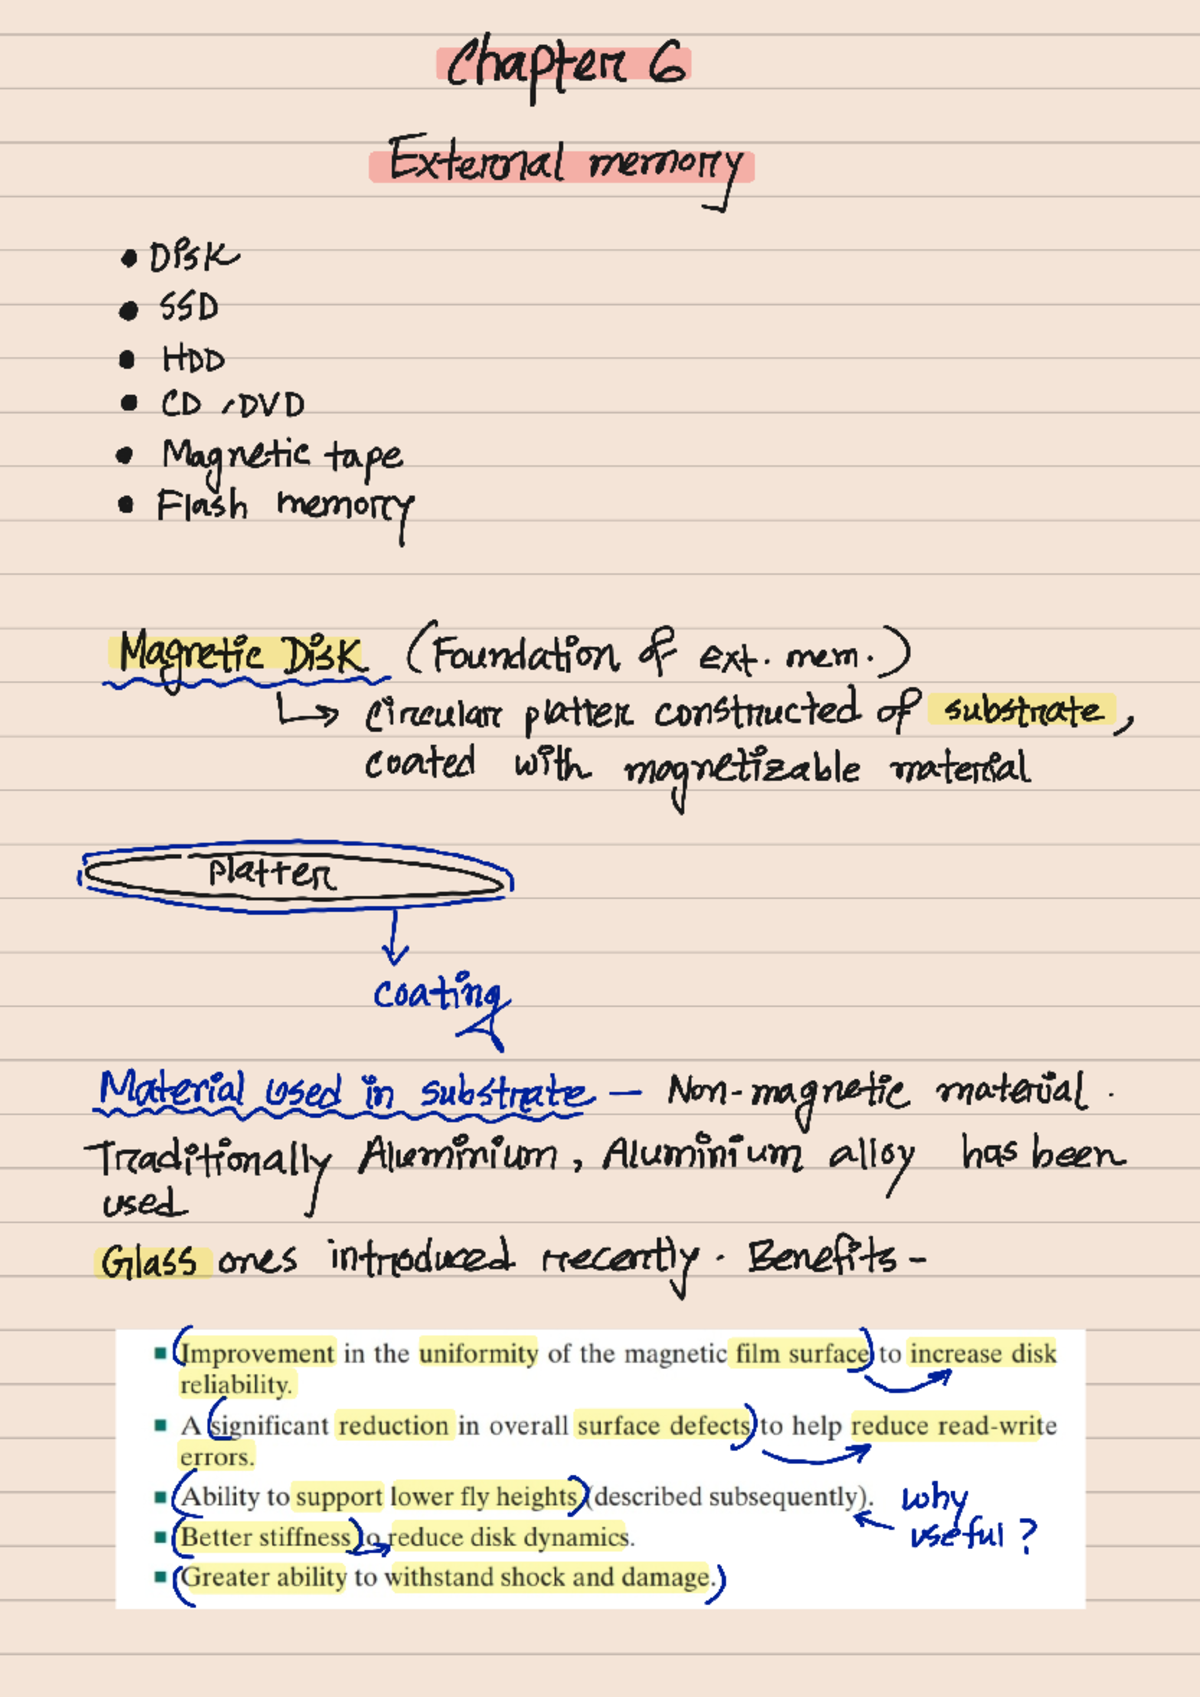 Chapter 6
External memory
• Disk
• SSD
• HDD
• CD, DVD
• Magnetic tape
• Flash memory
Magnetic Disk (Foundation of ext. mem.)
↳ circular platter constructed of substrate,
coated with magnetizable material
platter
coating
Material used in substrate — Non-magnetic material.
Traditionally Aluminium, Aluminium alloy has been
used
Glass ones introduced recently. Benefits -
■ Improvement in the uniformity of the magnetic film surface to increase disk
reliability.
■ A significant reduction in overall surface defects to help reduce read-write
errors.
■ Ability to support lower fly heights (described subsequently). why
useful?
■ Better stiffness to reduce disk dynamics.
■ Greater ability to withstand shock and damage.